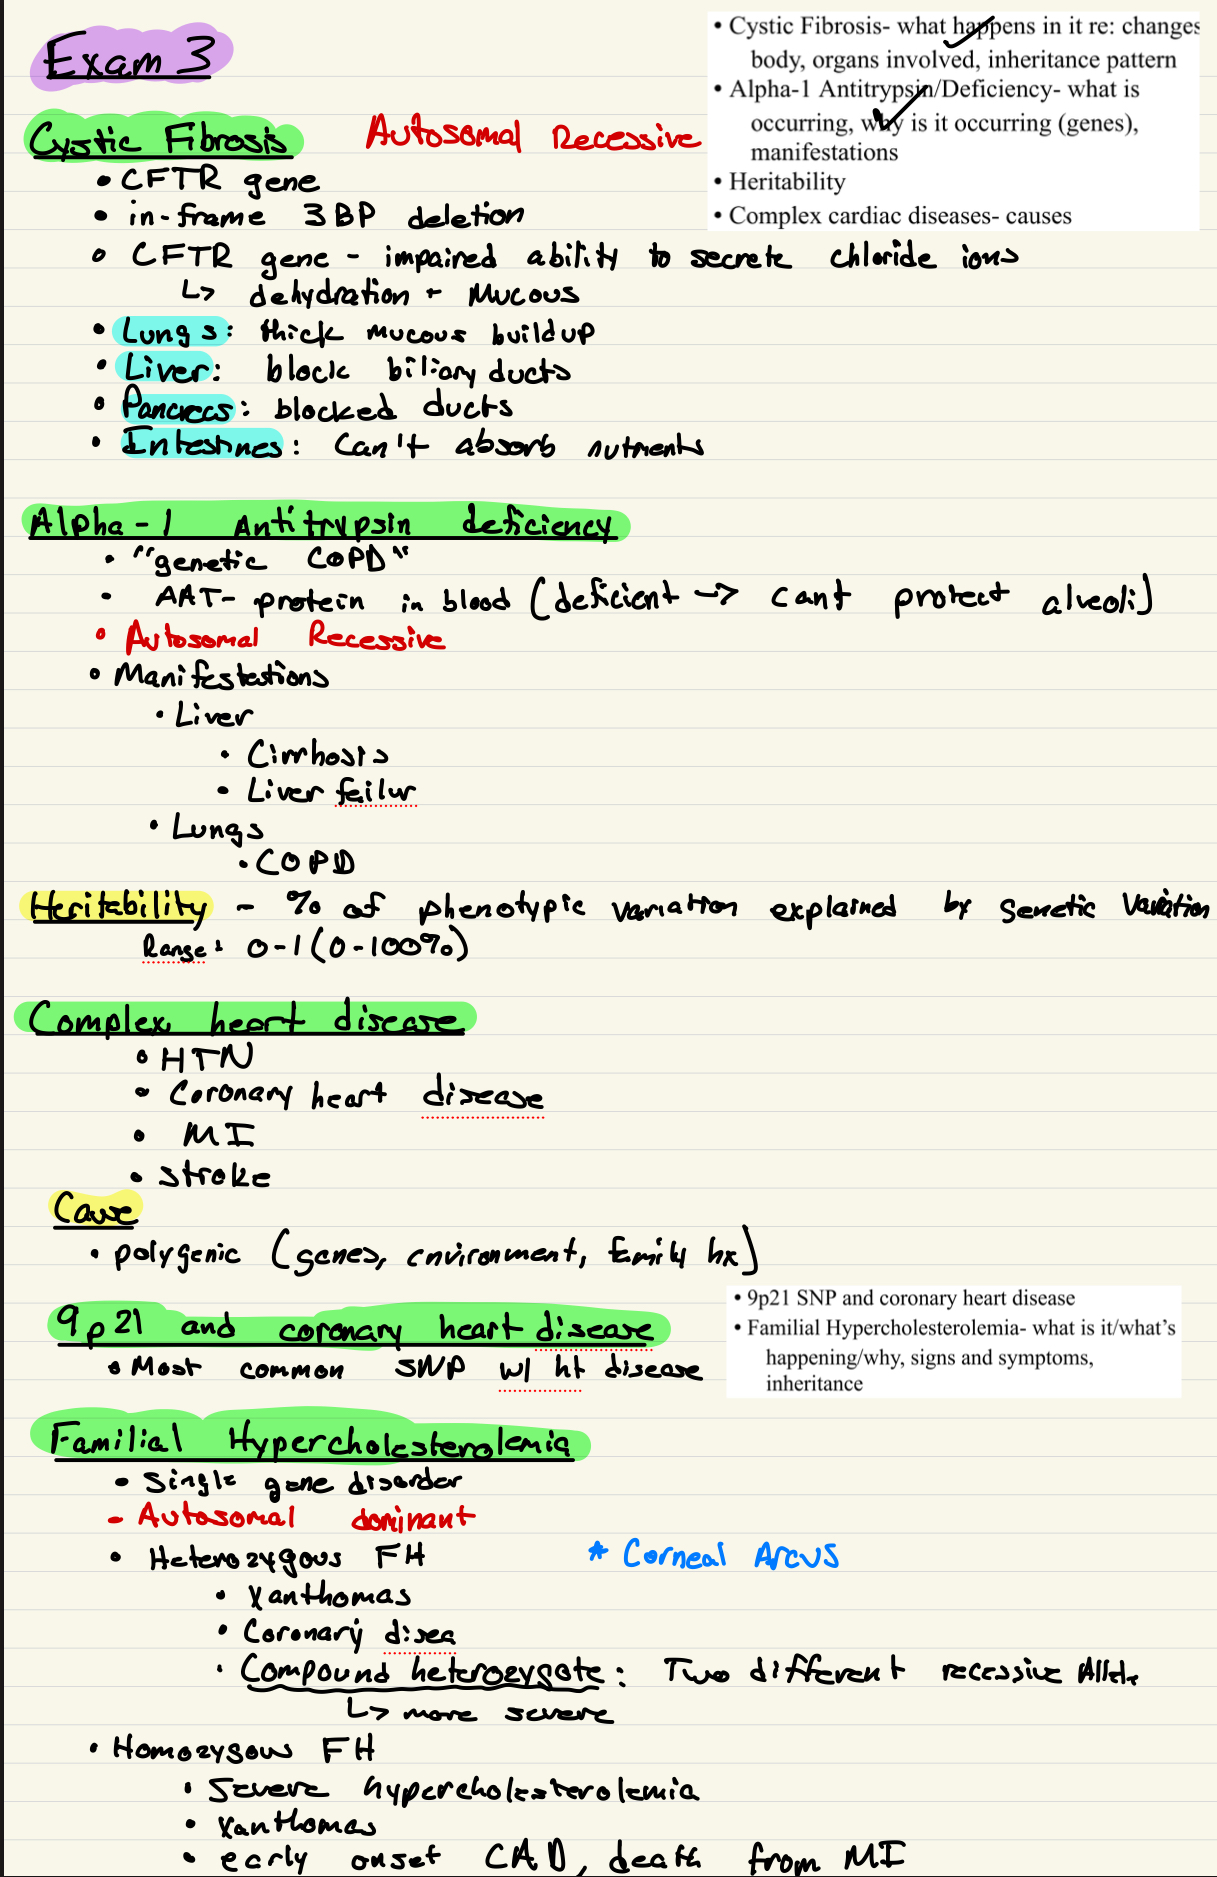 Exam 3
• Cystic Fibrosis- what happens in it re: changes
body, organs involved, inheritance pattern
• Alpha-1 Antitrypsin/Deficiency- what is
occurring, why is it occurring (genes),
manifestations
• Heritability
• Complex cardiac diseases- causes
Cystic Fibrosis Autosomal Recessive
• CFTR gene
• in-frame 3BP deletion
• CFTR gene - impaired ability to secrete chloride ions
↳ dehydration + Mucous
• Lungs: thick mucous buildup
• Liver: block biliary ducts
• Pancreas: blocked ducts
• Intestines: Can't absorb nutrients
Alpha-1 Antitrypsin deficiency
• "genetic COPD"
• AAT- protein in blood (deficient → cant protect alveoli)
• Autosomal Recessive
• Manifestations
• Liver
• Cirrhosis
• Liver failur
• Lungs
• COPD
Heritability - % of phenotypic variation explained by genetic variation
Range: 0-1 (0-100%)
Complex heart disease
• HTN
• Coronary heart disease
• MI
• stroke
Cause
• polygenic (genes, environment, family hx)
9p21 and coronary heart disease
• Most common SNP w/ ht disease
• 9p21 SNP and coronary heart disease
• Familial Hypercholesterolemia- what is it/what's
happening/why, signs and symptoms,
inheritance
Familial Hypercholesterolemia
• Single gene disorder
- Autosomal dominant
• Heterozygous FH * Corneal Arcus
• Xanthomas
• Coronary disea
• Compound heterozygote: Two different recessive Allele
↳ more severe
• Homozygous FH
• Severe hypercholesterolemia
• Xanthomas
• early onset CAD, death from MI